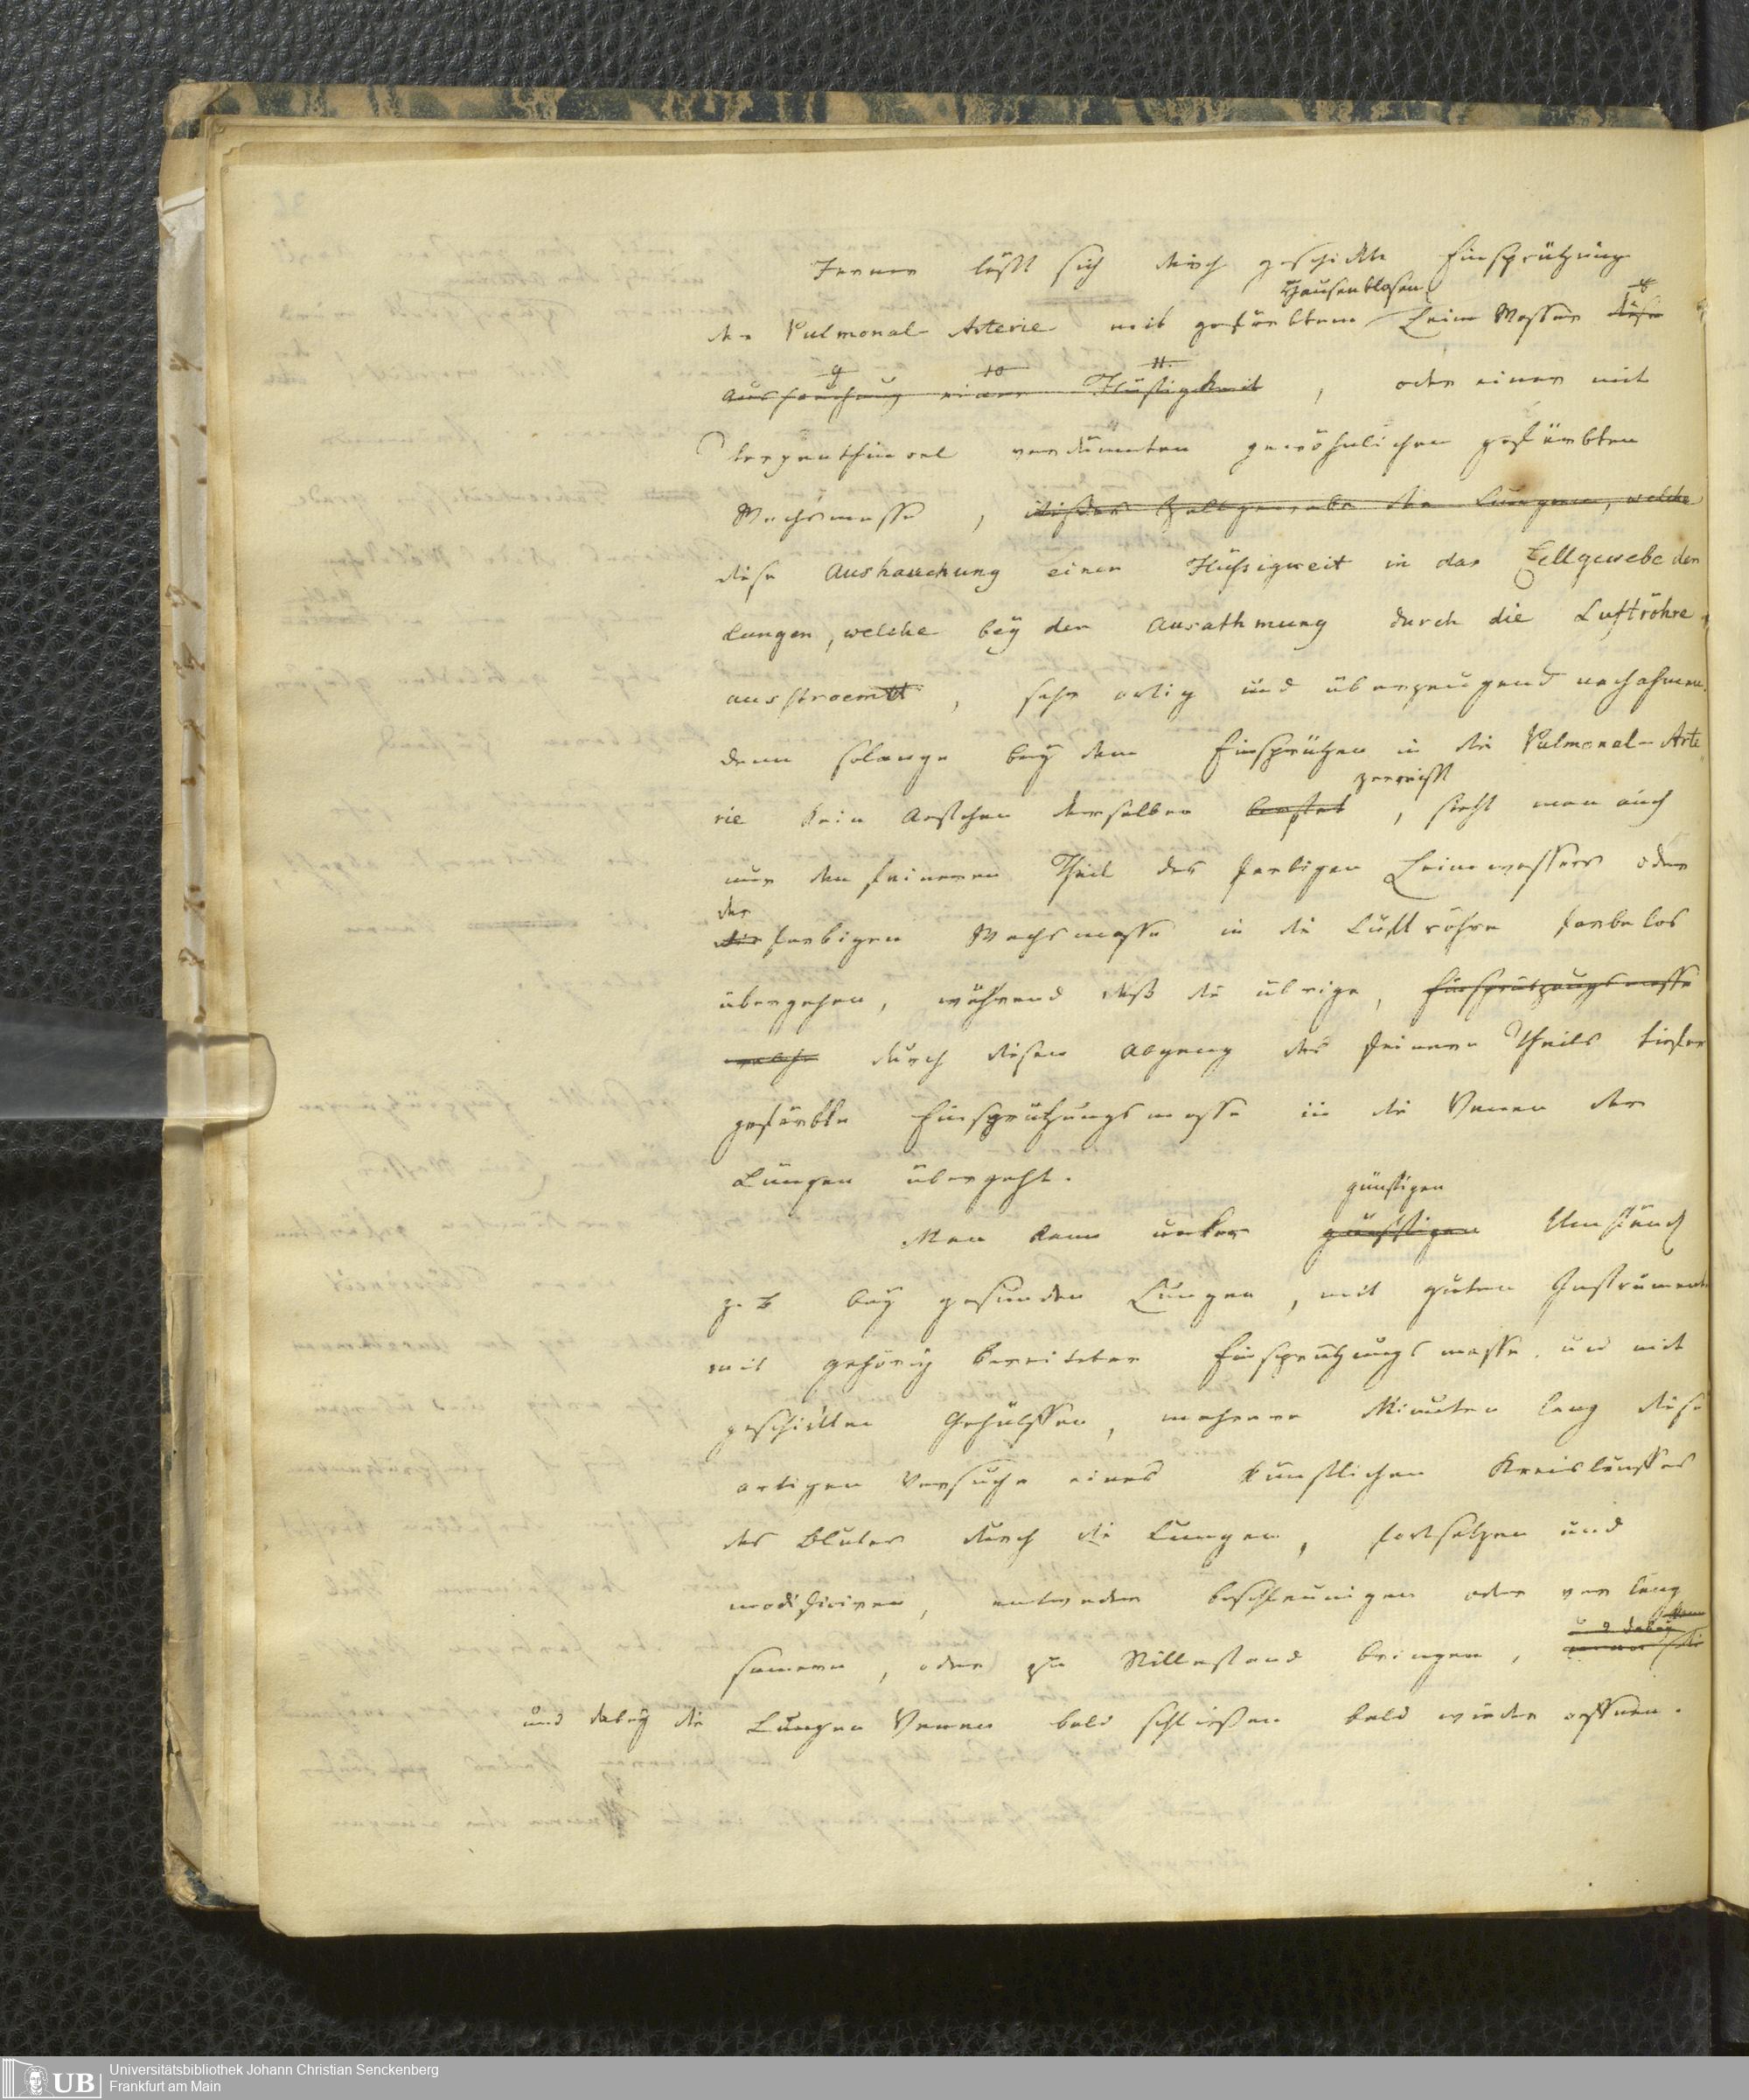 Ferner läßt sich durch geschickte Einsprützung
Hausenblasen 8
der Pulmonal-Arterie mit gefärbtem Leim Wasser diese
9 10 11.
Aushauchung einer Flüßigkeit, oder einer mit
Terpenthinoel verdünnten gewöhnlichen gefärbten
Wachsmasse, Zellgewebe der Lungen, welche
diese Aushauchung einer Flüßigkeit in das Zellgewebe der
Lungen, welche beÿ der Ausathmung durch die Luftröhre
ausstroemt, sehr artig und überzeugend nachahmen.
denn solange beÿ dem Einsprützen in die Pulmonal-Arte
zerreißt
rie kein Aestchen derselben berstet, sieht man auch
nur den feineren Theil des farbigen Leimwassers oder
der
die farbigen Wachsmasse in die Luftröhre farbelos
übergehen, während daß die übrige, Einsprützungsmasse
welche durch diesen Abgang des feineren Theils tiefer
gefärbte Einsprützungsmasse in die Venen der
Lungen übergeht.
günstigen
Man kann unter günstigen Umständ
z. B beÿ gesunden Lungen, mit guten Instrument
mit gehörig bereiteter Einsprützungsmasse und mit
geschickten Gehülffen, mehrere Minuten lang diese
artigen Versuche eines künstlichen Kreislauffes
des Blutes durch die Lungen, fortsetzen und
modificiren, entweder beschleunigen oder verlang
und dabey
samern, oder zu Stillestand bringen, die
und dabeÿ die Lungen Venen bald schließen bald wieder oeffnen.
Universitätsbibliothek Johann Christian Senckenberg
Frankfurt am Main
UB